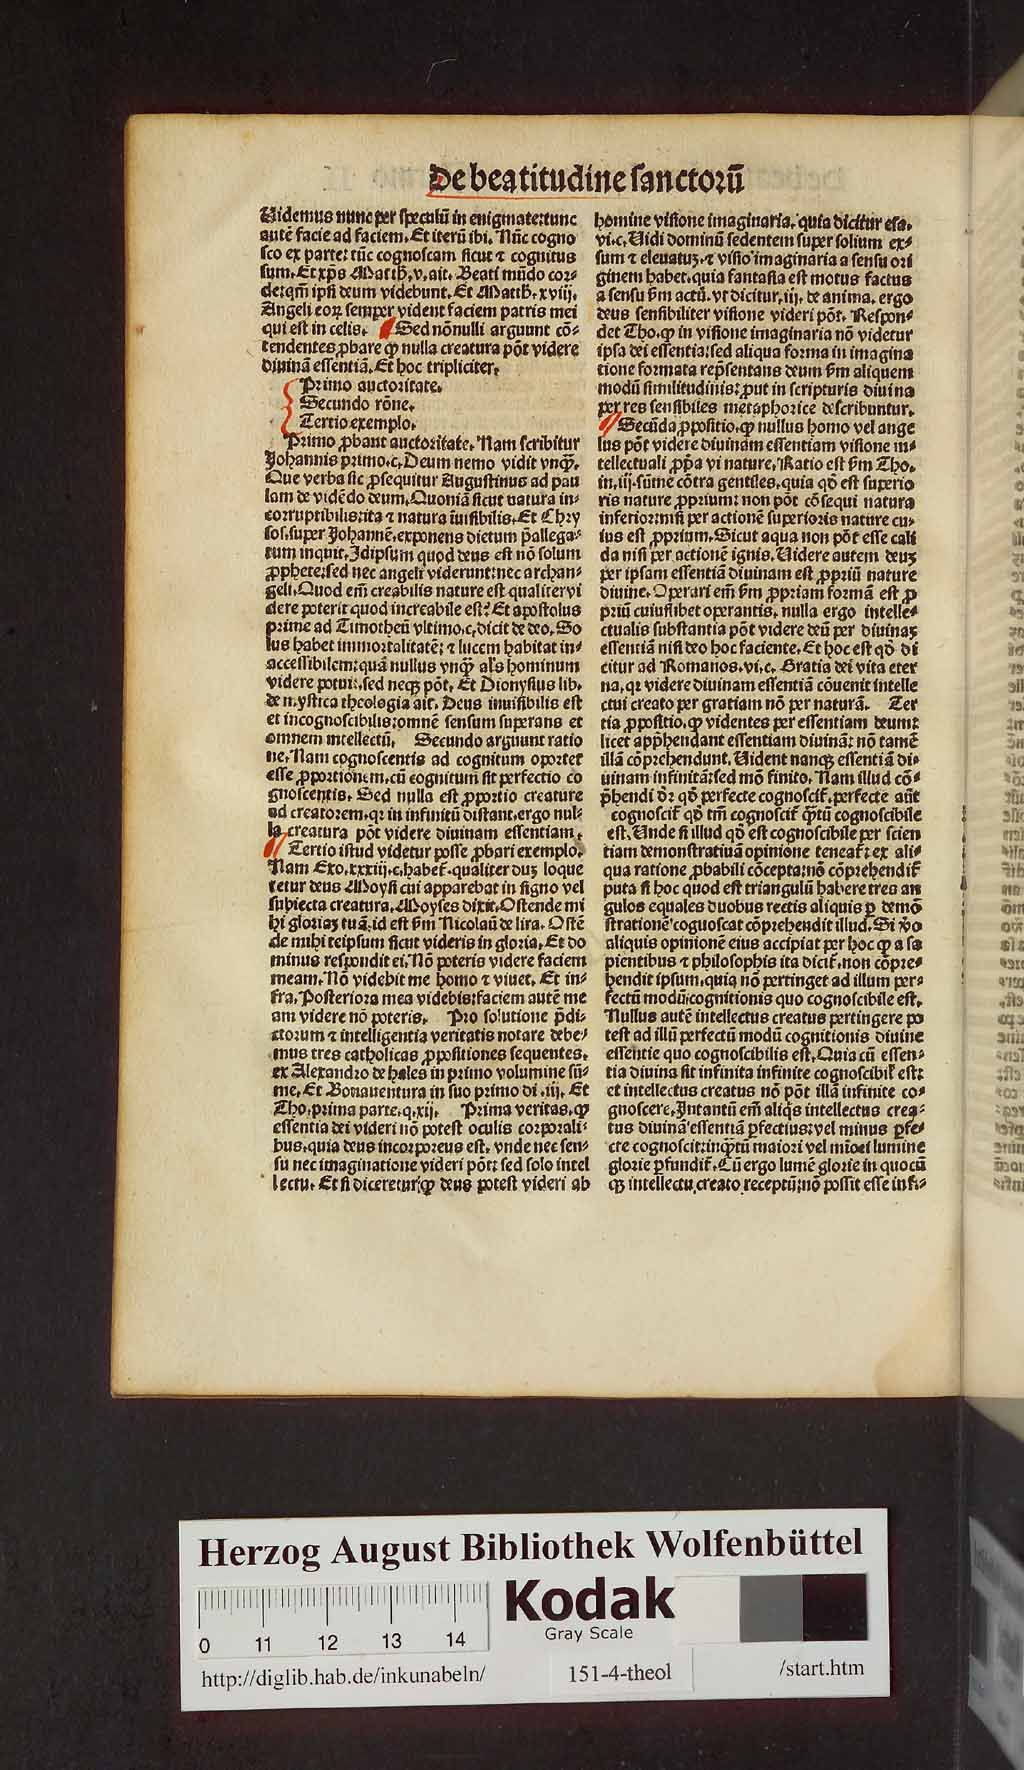 De beatitudine sanctorū
Videmus nunc per speculū in enigmate: tunc
autē facie ad faciem. Et iterū ibi. Nūc cogno
sco ex parte: tūc cognoscam sicut ⁊ cognitus
sum. Et xp̄s Matth. v. ait. Beati mūdo cor⸗
de: qm̄ ipsi deum videbunt. Et Matth. xviij.
Angeli eoꝝ semper vident faciem patris mei
qui est in celis. Sed nōnulli arguunt cō⸗
tendentes ꝓbare ꝙ nulla creatura pōt videre
diuinā essentiā. Et hoc tripliciter.
Primo auctoritate.
Secundo rōne.
Tertio exemplo.
Primo ꝓbant auctoritate. Nam scribitur
Johannis primo. c. Deum nemo vidit vnqꝫ.
Que verba sic ꝓsequitur Augustinus ad pau
lam de vidēdo deum. Quoniā sicut natura in⸗
corruptibilis: ita ⁊ natura īuisibilis. Et Chry
sos. super Johannē. exponens dictum p̄allega⸗
tum inquit. Idipsum quod deus est nō solum
ꝓphete: sed nec angeli viderunt: nec archan⸗
geli. Quod em̄ creabilis nature est qualiter vi
dere poterit quod increabile est? Et apostolus
prime ad Timotheū vltimo. c. dicit de deo. So
lus habet immortalitatē: ⁊ lucem habitat in⸗
accessibilem: quā nullus vnqꝫ als hominum
videre potuit. sed neqꝫ pōt. Et Dionysius lib.
de mystica theologia ait. Deus inuisibilis est
et incognoscibilis: omnē sensum superans et
omnem intellectū. Secundo arguunt ratio
ne. Nam cognoscentis ad cognitum oportet
esse ꝓportionem. cū cognitum sit perfectio co
gnoscentis. Sed nulla est ꝓportio creature
ad creatorem. qꝛ in infinitū distant. ergo nul⸗
la creatura pōt videre diuinam essentiam.
Tertio istud videtur posse ꝓbari exemplo.
Nam Exo. xxxiij. c. habet̄. qualiter duꝫ loque
retur deus Moysi cui apparebat in signo vel
subiecta creatura. Moyses dixit. Ostende mi
hi gloriaꝫ tuā. id est s̄m Nicolaū de lira. Ostē
de mihi teipsum sicut videris in gloria. Et do
minus respondit ei. Nō poteris videre faciem
meam. Nō videbit me homo ⁊ viuet. Et in⸗
fra. Posteriora mea videbis: faciem autē me
am videre nō poteris. Pro solutione p̄di⸗
ctorum ⁊ intelligentia veritatis notare debe⸗
mus tres catholicas ꝓpositiones sequentes.
ex Alexandro de hales in primo volumine sū⸗
me. Et Bonauentura in suo primo di .iij. Et
Tho. prima parte. q. xij. Prima veritas. ꝙ
essentia dei videri nō potest oculis corporali⸗
bus. quia deus incorporeus est. vnde nec sen⸗
su nec imaginatione videri pōt: sed solo intel
lectu. Et si diceretur ꝙ deus potest videri ab
homine visione imaginaria. quia dicitur esa.
vi. c. Vidi dominū sedentem super solium ex⸗
sum ⁊ eleuatuꝫ. ⁊ visio imaginaria a sensu ori
ginem habet. quia fantasia est motus factus
a sensu s̄m actū. vt dicitur. iij. de anima. ergo
deus sensibiliter visione videri pōt. Respon⸗
det Tho. ꝙ in visione imaginaria nō videtur
ipsa dei essentia: sed aliqua forma in imagina
tione formata rep̄sentans deum s̄m aliquem
modū similitudinis: ꝓut in scripturis diuina
per res sensibiles metaphorice describuntur.
Secūda ꝓpositio. ꝙ nullus homo vel ange
lus pōt videre diuinam essentiam visione in⸗
tellectuali ꝓp̄a vi nature. Ratio est s̄m Tho.
in. iij. sūme cōtra gentiles. quia qd̄ est superio
ris nature ꝓprium: non pōt cōsequi natura
inferior: nisi per actionē superioris nature cu⸗
ius est ꝓprium. Sicut aqua non pōt esse cali
da nisi per actionē ignis. Videre autem deuꝫ
per ipsam essentiā diuinam est ꝓpriū nature
diuine. Operari em̄ s̄m ꝓpriam formā est ꝓ
priū cuiuslibet operantis. nulla ergo intelle⸗
ctualis substantia pōt videre deū per diuinaꝫ
essentiā nisi deo hoc faciente. Et hoc est qd̄ di
citur ad Romanos. vi. c. Gratia dei vita eter
na. qꝛ videre diuinam essentiā cōuenit intelle
ctui creato per gratiam nō per naturā. Ter
tia ꝓpositio. ꝙ videntes per essentiam deum:
licet app̄hendant essentiam diuinā: nō tamē
illā cōprehendunt. Vident nanqꝫ essentiā di⸗
uinam infinitā: sed mō finito. Nam illud cō⸗
p̄hendi dr̄ qd̄ perfecte cognoscit̄. perfecte aūt
cognoscit̄ qd̄ tm̄ cognoscit̄ ꝙtū cognoscibile
est. Vnde si illud qd̄ est cognoscibile per scien
tiam demonstratiuā opinione teneat̄: ex ali⸗
qua ratione ꝓbabili cōcepta: nō cōprehendit̄
puta si hoc quod est triangulū habere tres an
gulos equales duobus rectis aliquis ꝑ demō
strationē cognoscat cōprehendit illud. Si vo
aliquis opinionē eius accipiat per hoc ꝙ a sa
pientibus ⁊ philosophis ita dicit̄. non cōpre⸗
hendit ipsum. quia nō pertinget ad illum per⸗
fectū modū cognitionis quo cognoscibile est.
Nullus autē intellectus creatus pertingere po
test ad illū perfectū modū cognitionis diuine
essentie quo cognoscibilis est. Quia cū essen⸗
tia diuina sit infinita infinite cognoscibil' est:
et intellectus creatus nō pōt illā infinite co⸗
gnoscere. Intantū em̄ aliqs intellectus crea⸗
tus diuinā essentiā ꝑfectius: vel minus ꝑfe⸗
cte cognoscit: inꝙtū maiori vel mīori lumine
glorie ꝑfundit̄. Cū ergo lumē glorie in quocū
qꝫ intellectu creato receptū: nō possit esse infi⸗
Herzog August Bibliothek Wolfenbüttel
Kodak
Gray Scale
0 11 12 13 14
http://diglib.hab.de/inkunabeln/ 151-4-theol /start.htm